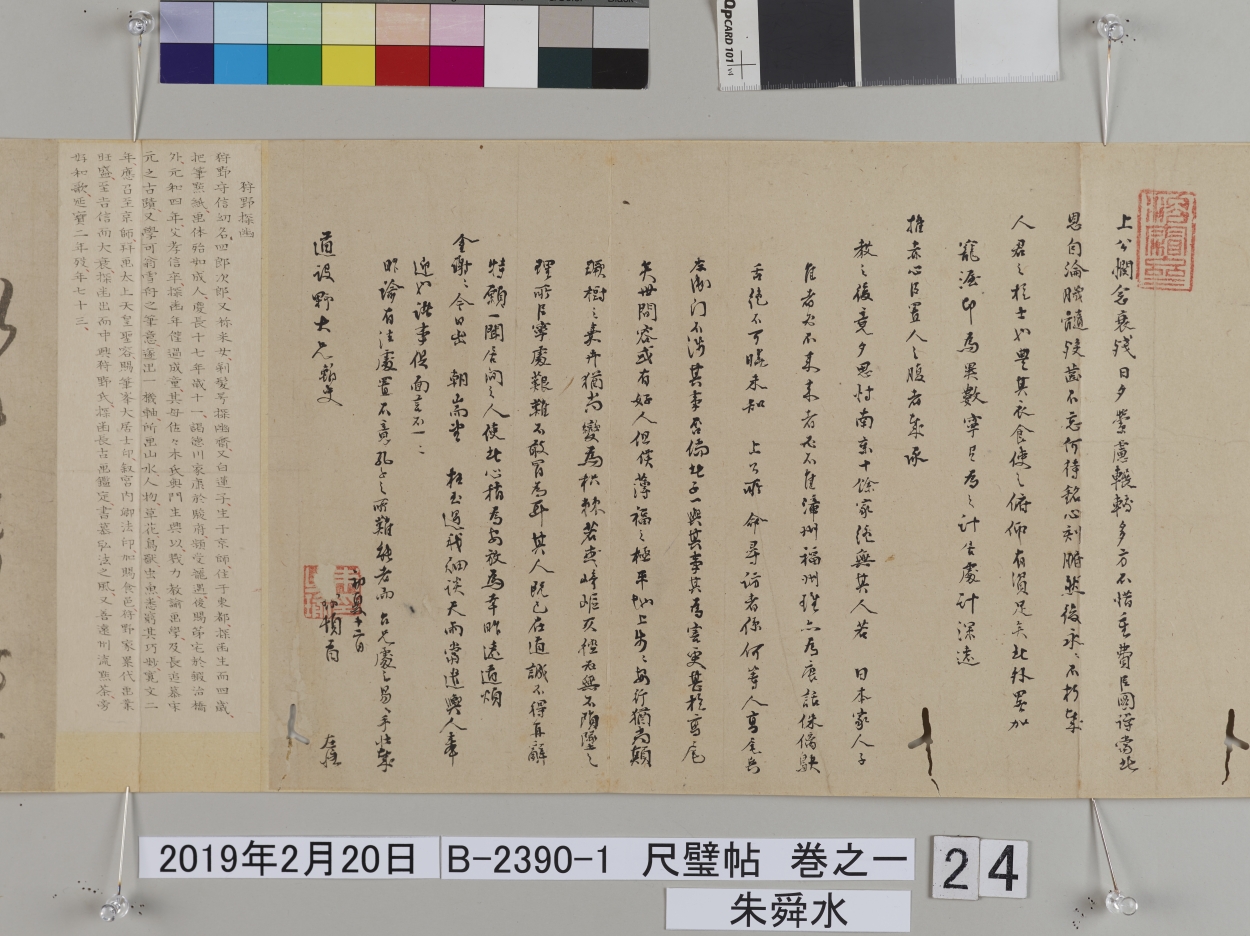 上公憫念衰殘日夕營慮輾轉多方不惜重費臣圖謀當此
恩自淪膸髓歿齒不忘何待銘心刻腑然後永々不朽哉
人君之於士也畀其衣食使之俯仰有資足矣此殊異加
寵渥卬為異數寧足為之計生慮計深遠
推赤心臣置人之腹者哉承
教之後竟夕思忖南京十餘家絕無其人若 日本家人子
隹者必不来来者必不隹漳州福州雖六有唐話侏𠌯鴃
舌絕不可曉未知 上公所 命尋訪者係何等人高尾兵
左衛门不涉其事否倘此子一與其事其為害更甚於高尾
矣世間容或有好人但僕薄福之極平地上步々安行猶尚顛
躓樹之棗卉猶尚變為枳棘若走崎嶇仄徑在無不隕墜之
理所臣寧處艱難不敢冒為耳其人既已在道誠不得再辭
特願一閱居间之人使此心稍為安放為幸昨遠道煩
金謝々今日出 朝耑望 枉玉過我細談天雨當遣輿人奉
迎也諸事俱面言不一々
昨諭有注處置不竟孔子之所難能者而 台兄處之易々手壯哉
道設野大兄敬文
初夏十二日
頓首
左㧞
狩野探幽
狩野守信幼名四郎次郎又称采女剃髮号探幽齋又白蓮子生于京師住于東都探幽生而四歲
把筆點紙畫体殆如成人慶長十七年歲十一謁德川家康於駿府頻受寵遇後賜第宅於鍛冶橋
外元和四年父孝信卒探幽年僅過成童其母佐々木氏與門生興以戮力教諭画學及長追慕宋
元之古蹟又學可翁雪舟之筆意遂出一機軸所画山水人物草花鳥獸虫魚悉窮其巧既寬文二
年應召至京師拜画太上天皇聖容賜筆峯大居士印叙宮内卿法印加賜食邑狩野家累代画業
旺盛至吉信而大衰探幽出而中興狩野氏探幽長古画鑑定書慕弘法之風又善遠州流點茶旁
好和歌延寶二年歿年七十三
QPCARD 101 v4
2019年2月20日
B-2390-1 尺璧帖 巻之一
24
朱舜水